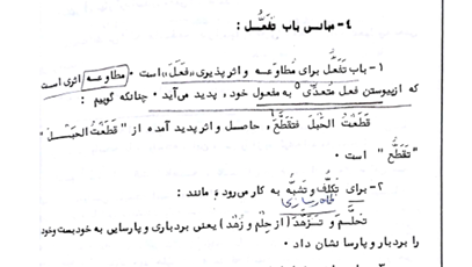 ٤- معانی باب تَفَعُّل :
١- باب تَفَعُّل برای مُطاوَعه و اثرپذیری «فَعَّلَ» است ۰ مطاوعه اثری است
که ازپیوستن فعل متعدّی به مفعول خود، پدید می‌آید ۰ چنانکه گوییم :
قَطَّعْتُ الحَبْلَ فَتَقَطَّعَ، حاصل و اثر پدید آمده از "قَطَّعْتُ الحَبْلَ"
"تَقَطُّع" است ۰
٢- برای تَکَلُّف و تشبُّه به کار می‌رود، مانند :
ظاهرسازی
تَحَلَّمَ و تَزَهَّدَ (از حِلْم و زُهْد) یعنی بردباری و پارسایی به خودبست وخود
را بردبار و پارسا نشان داد ۰